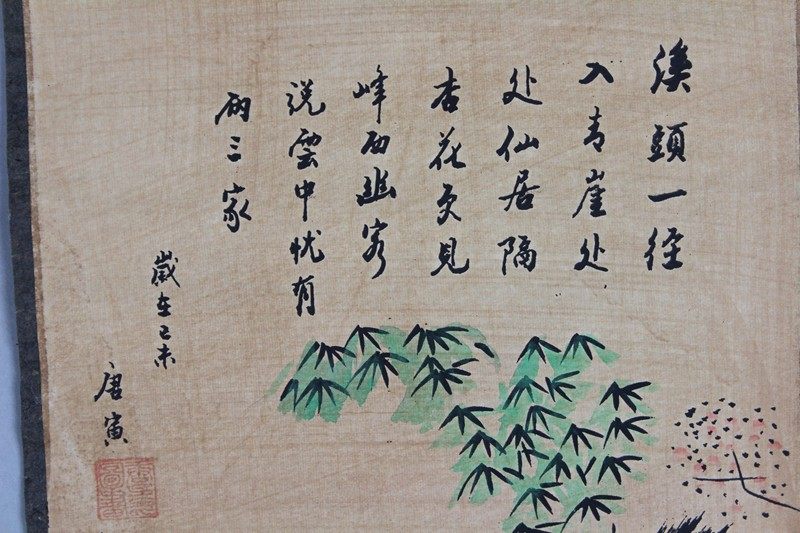 溪頭一径
入青崖处
处仙居隔
杏花更見
峰西幽客
説雲中忧有
兩三家
歲在己未
唐寅